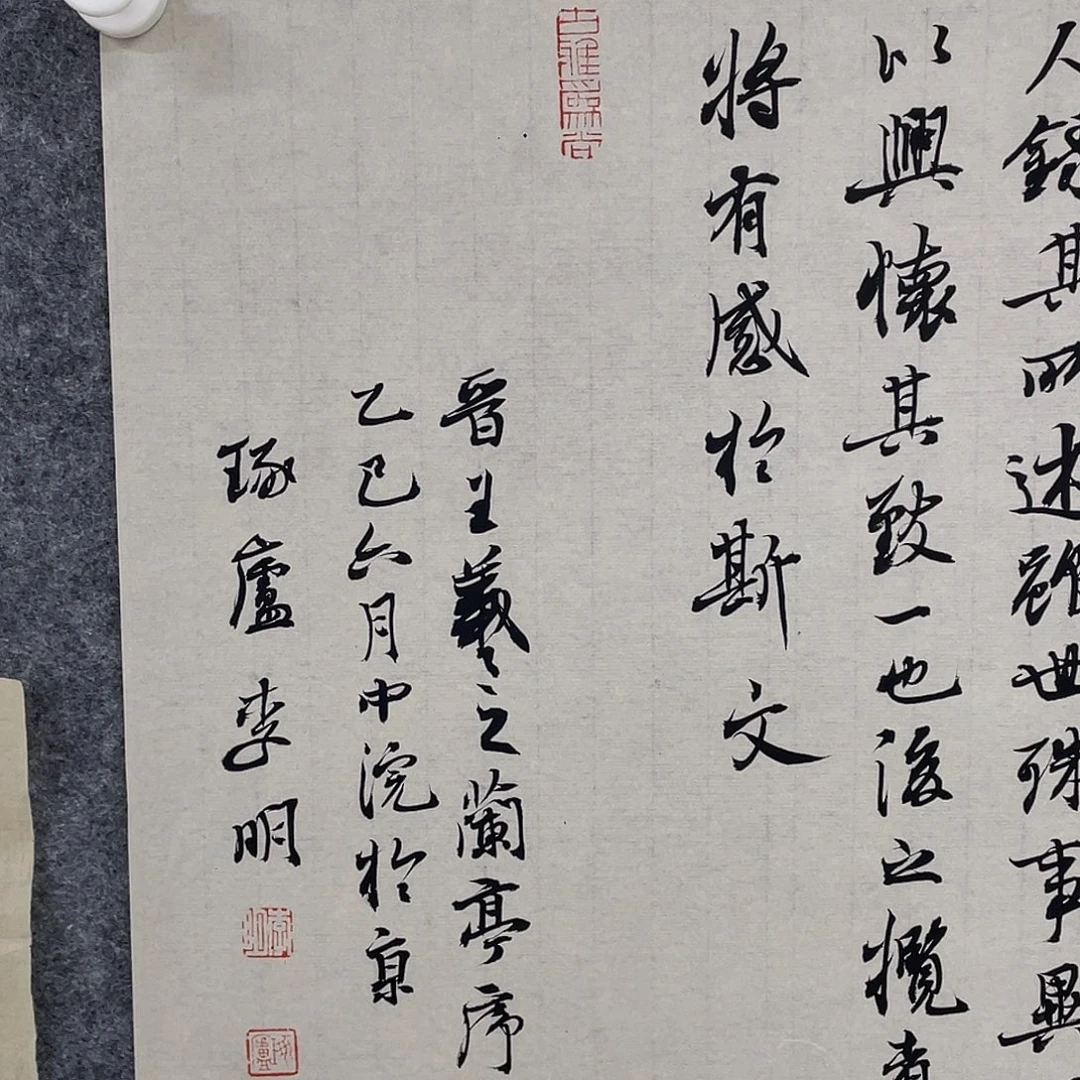 人錄其所述雖世殊事異
以興懷其致一也後之攬者
將有感於斯文
晉王羲之蘭亭序
乙巳六月中浣於京
琢廬李明